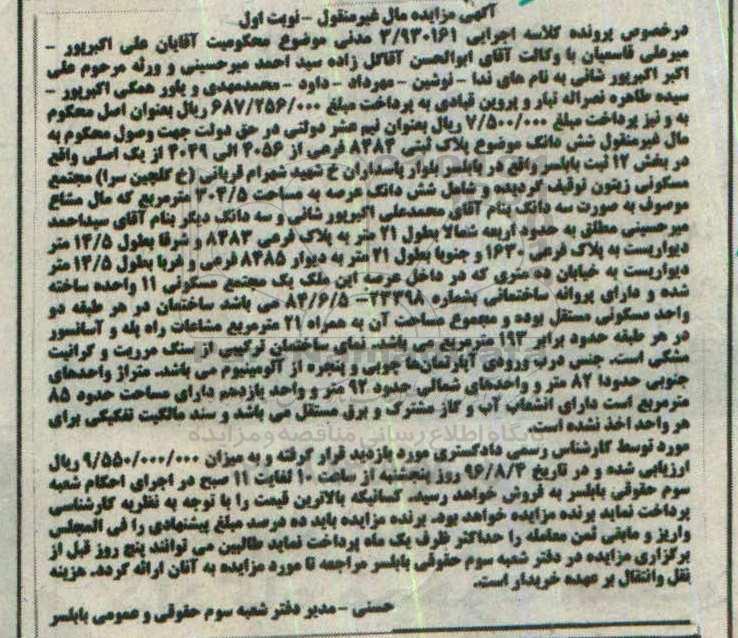 آگهی مزایده مال غیرمنقول - نوبت اول
درخصوص پرونده کلاسه اجرایی ۳/۹۳۰۱۶۱ مدنی موضوع محکومیت آقایان علی اکبرپور -
میرعلی قاسمیان با وکالت آقای ابوالحسن آقاگل زاده سید احمد میرحسینی و ورثه مرحوم علی
اکبر اکبرپور شانی به نام های ندا - نوشین - مهرداد - داود - محمدمهدی و یاور همگی اکبرپور -
سیده طاهره نصراله تبار و پروین قبادی به پرداخت مبلغ ۶۸۷/۲۵۶/۰۰۰ ریال بعنوان اصل محکوم
به و نیز پرداخت مبلغ ۷/۵۰۰/۰۰۰ ریال بعنوان نیم عشر دولتی در حق دولت جهت وصول محکوم به
مال غیرمنقول شش دانگ موضوع پلاک ثبتی ۸۴۸۴ فرعی از ۴۰۵۶ الی ۴۰۴۹ از یک اصلی واقع
در بخش ۱۲ ثبت بابلسر واقع در بابلسر بلوار پاسداران خ شهید شهرام قربانی (خ گلچین سرا) مجتمع
مسکونی زیتون توقیف گردیده و شامل شش دانگ عرصه به مساحت ۳۰۴/۵ مترمربع که مال مشاع
موصوف به صورت سه دانگ بنام آقای محمدعلی اکبرپور شانی و سه دانگ دیگر بنام آقای سیداحمد
میرحسینی مطلق به حدود اربعه شمالا بطول ۲۱ متر به پلاک فرعی ۸۴۸۳ و شرقا بطول ۱۴/۵ متر
دیواریست به پلاک فرعی ۱۶۳۰ و جنوبا بطول ۲۱ متر به دیوار ۸۴۸۵ فرعی و غربا بطول ۱۴/۵ متر
دیواریست به خیابان ده متری که در داخل عرصه این ملک یک مجتمع مسکونی ۱۱ واحده ساخته
شده و دارای پروانه ساختمانی بشماره ۲۳۳۹۸-۸۴/۶/۵ می باشد ساختمان در هر طبقه دو
واحد مسکونی مستقل بوده و مجموع مساحت آن به همراه ۲۱ مترمربع مشاعات راه پله و آسانسور
در هر طبقه حدود برابر ۱۹۳ مترمربع می باشد. نمای ساختمان ترکیبی از سنگ مرریت و گرانیت
مشکی است. جنس درب ورودی آپارتمان‌ها چوبی و پنجره از آلومینیوم می باشد. متراژ واحدهای
جنوبی حدودا ۸۲ متر و واحدهای شمالی حدود ۹۲ متر و واحد یازدهم دارای مساحت حدود ۸۵
مترمربع است دارای انشعاب آب و گاز مشترک و برق مستقل می باشد و سند مالکیت تفکیکی برای
هر واحد اخذ نشده است.
پایگاه اطلاع رسانی مناقصه و مزایده
مورد توسط کارشناس رسمی دادگستری مورد بازدید قرار گرفته و به میزان ۹/۵۵۰/۰۰۰/۰۰۰ ریال
ارزیابی شده و در تاریخ ۹۶/۸/۴ روز پنجشنبه از ساعت ۱۰ لغایت ۱۱ صبح در اجرای احکام شعبه
سوم حقوقی بابلسر به فروش خواهد رسید. کسانیکه بالاترین قیمت را با توجه به نظریه کارشناسی
پرداخت نماید برنده مزایده خواهد بود. برنده مزایده باید ده درصد مبلغ پیشنهادی را فی المجلس
واریز و مابقی ثمن معامله را حداکثر ظرف یک ماه پرداخت نماید طالبین می توانند پنج روز قبل از
برگزاری مزایده در دفتر شعبه سوم حقوقی بابلسر مراجعه تا مورد مزایده به آنان ارائه گردد. هزینه
نقل وانتقال بر عهده خریدار است.
حسنی - مدیر دفتر شعبه سوم حقوقی و عمومی بابلسر